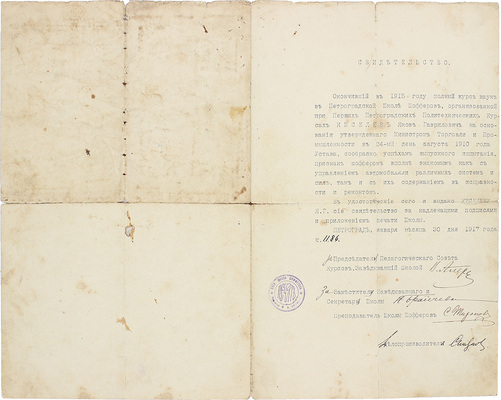 СВИДѢТЕЛЬСТВО.
Окончившій въ 1915 году полный курсъ наукъ
въ Петроградской Школѣ Шофферовъ, организованной
при Первыхъ Петроградскихъ Политехническихъ Кур-
сахъ Яковъ Гавриловичъ на осно-
ваніи утвержденнаго Министромъ Торговли и Про-
мышленности въ 24-ый день августа 1910 года
Устава, совершилъ успѣшно выпускного испытанія,
причемъ шофферъ вполнѣ знакомымъ какъ съ
управленіемъ автомобилями различныхъ системъ и
силъ, такъ и съ ихъ содержаніемъ въ исправности
и ремонтомъ.
Въ удостовѣреніе сего и выдано
Я.Г. сіе свидѣтельство за надлежащими подписями
и приложеніемъ печати Школы.
ПЕТРОГРАДЪ, января мѣсяца 20 дня 1917 года
№ 1186.
Предсѣдатель Педагогическаго Совѣта
Курсовъ, Завѣдывающій Школой
За Замѣститель Завѣдывающаго и
Секретарь Школы
Преподаватель Школы Шофферовъ
Дѣлопроизводитель